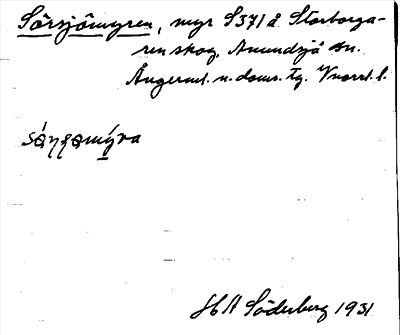 Sörsjömyren, myr S371 å Storborga-
ren skog, Anundsjö sn.
Ångerml. n. doms. tg. Vnorrl. l.
H A Söderberg 1931